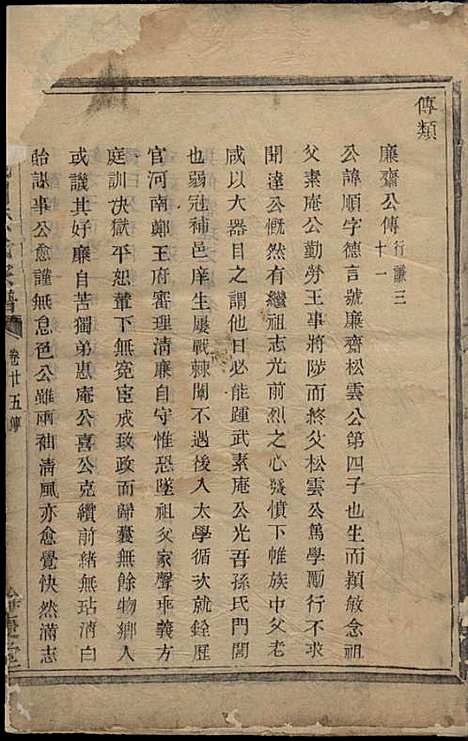 傳類
廉齋公傳行謙三十一
公諱順字德言號廉齋松雲公第四子也生而穎敏念祖
父素庵公勤勞王事將陟而終父松雲公篤學勵行不求
聞達公慨然有繼祖志光前烈之心發憤下帷族中父老
咸以大器目之謂他日必能踵武素庵公光吾孫氏門閭
也弱冠補邑庠生屢戰棘闈不遇後入太學循次就銓歷
官河南鄭王府審理清廉自守惟恐墜祖父家聲乖義方
庭訓决獄平恕輦下無寃臣成致政而歸囊無餘物鄉人
或議其好廉自苦獨弟惠庵公喜公克纘前緒無玷清白
貽謀事公愈謹無怠色公雖兩袖清風亦愈覺快然滿志
譜
卷廿五傳
堂